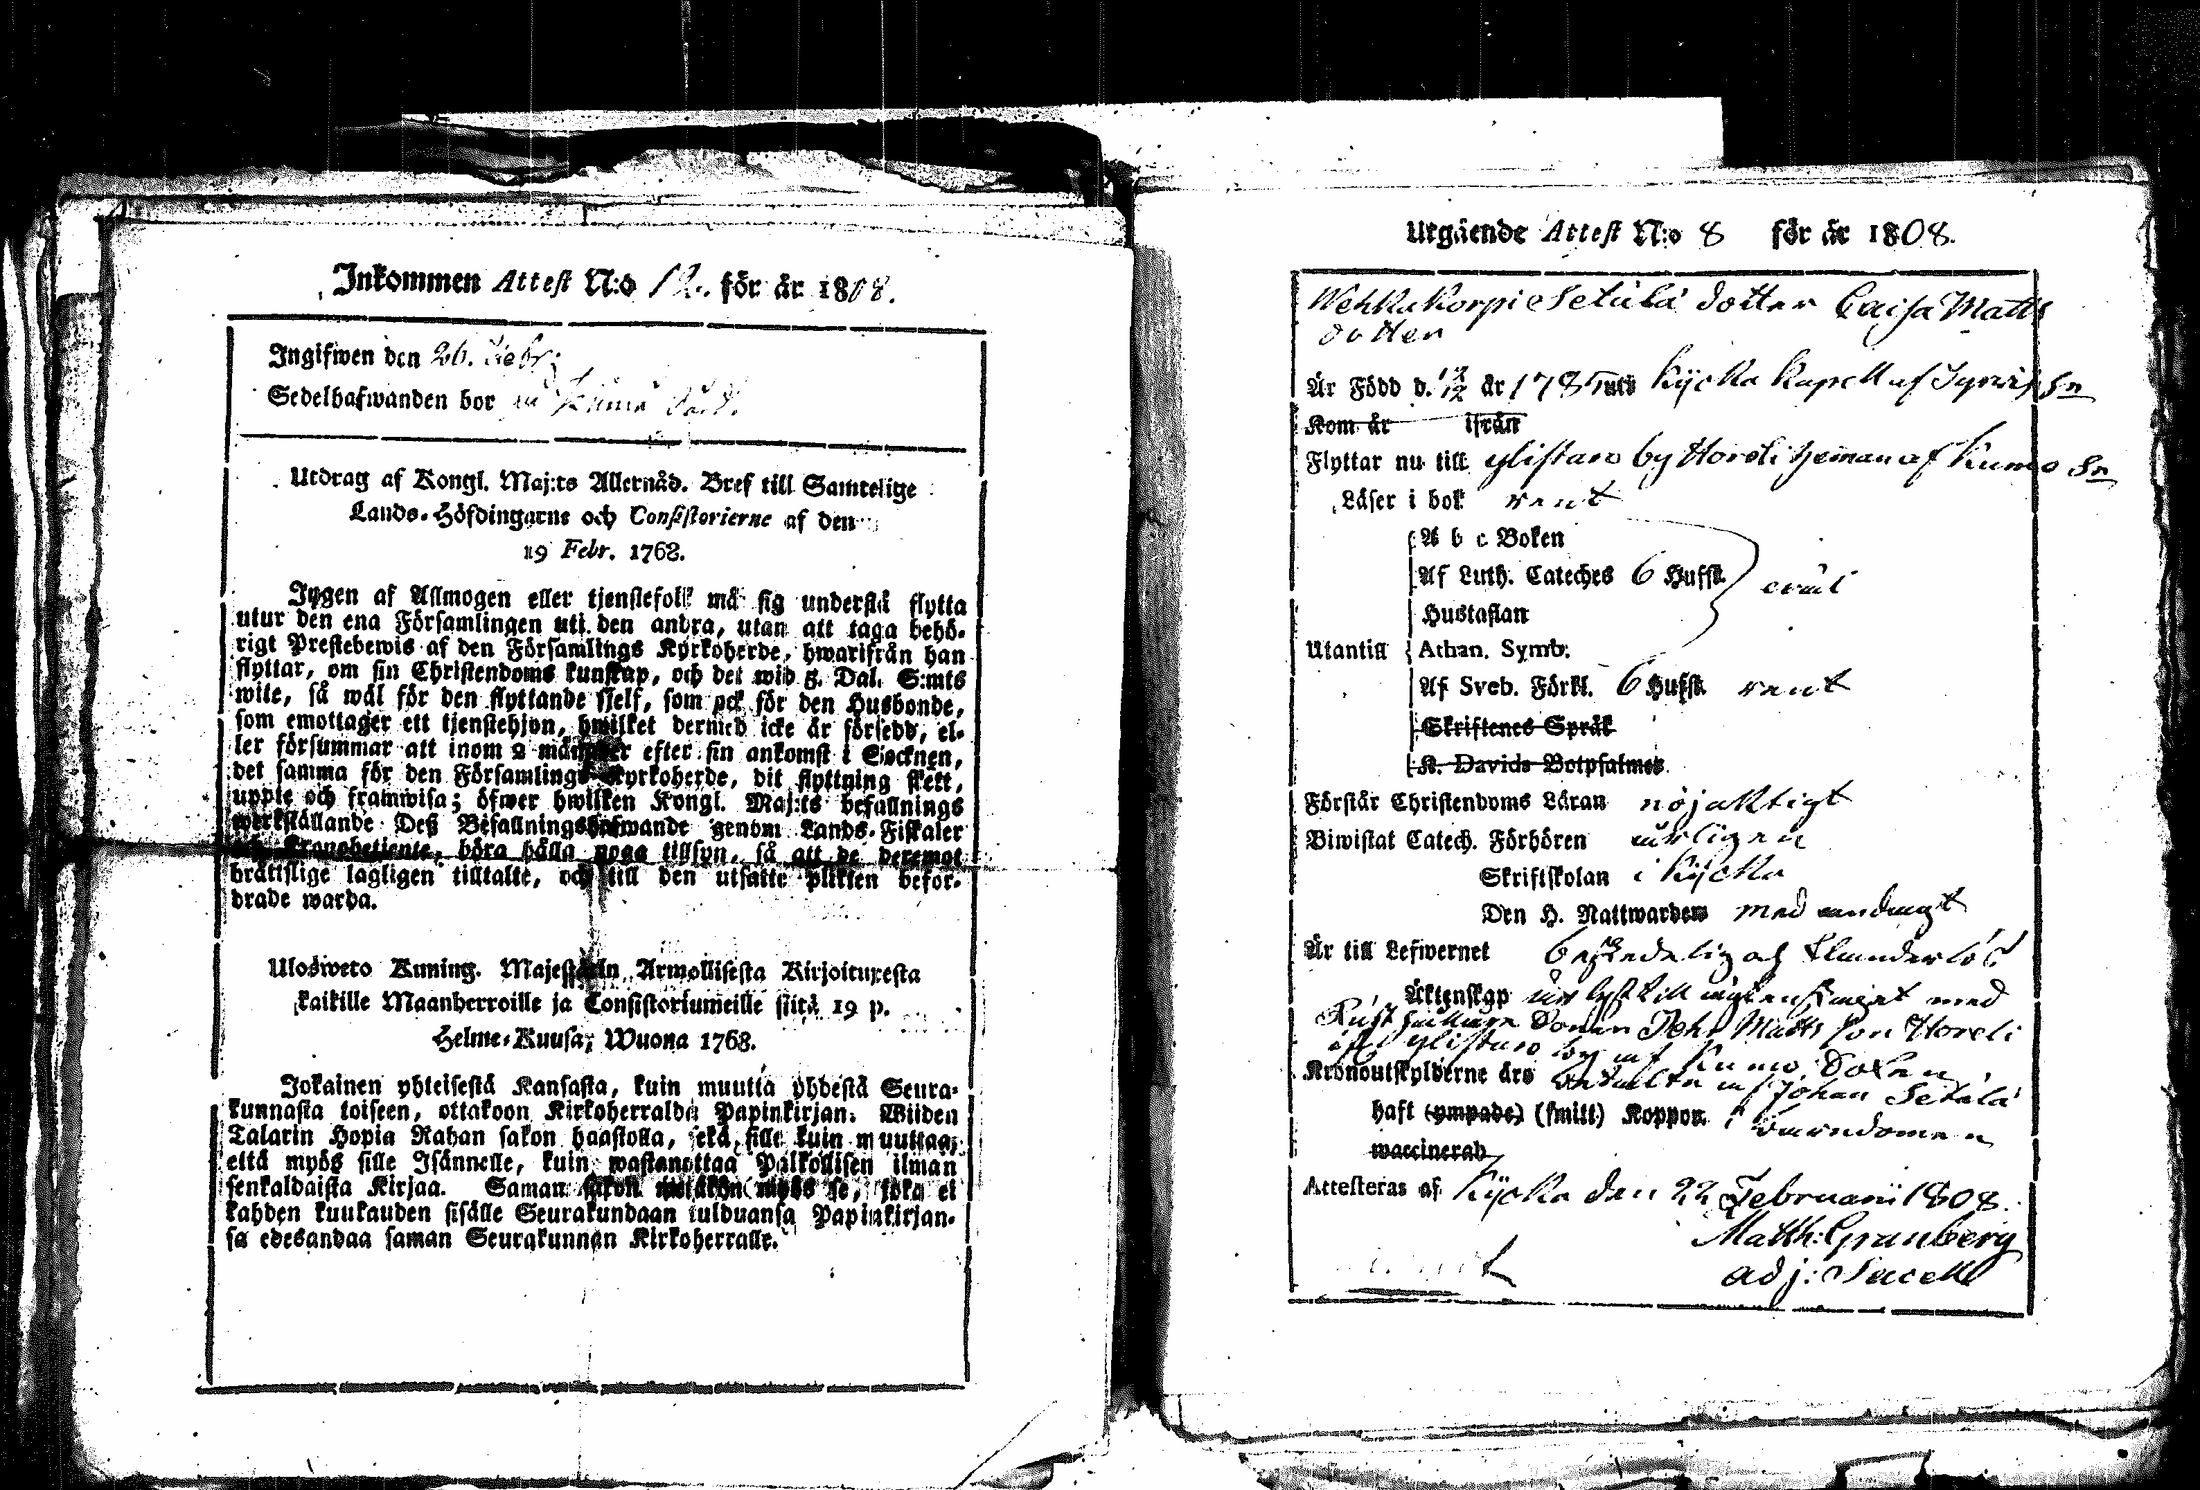 Inkommen Attest N:o 12. för år 1808.
Ingifwen den 26. Febr:
Sedelhafwanden bor
Utdrag af Kongl. Maj:ts Allernåd. Bref till Samtelige
Lands-Höfdingarne och Consistorierne af den
19 Febr. 1768.
Ingen af Allmogen eller tjenstefolk må sig understå flytta
utur den ena Församlingen uti den andra, utan att taga behö-
rigt Prestebewis af den Församlings Kyrkoherde, hwarifrån han
flyttar, om sin Christendoms kunskap, och det wid 5. Dal. S:mts
wite, så wäl för den flyttande sjelf, som ock för den Husbonde,
som emottager ett tjenstehjon, hwilket dermed icke är försedd, el-
ler försummar att inom 2 månader efter sin ankomst i Socknen,
det samma för den Församlings Kyrkoherde, dit flyttning skett,
uppte och framwisa; öfwer hwilken Kongl. Maj:ts befallnings
werkställande Deß Befallningshafwande genom Lands-Fiskaler
och Kronobetjente, böra hålla noga tillsyn, så att de deremot
brätslige lagligen tilltalte, och till den utsatte plikten befor-
drade warda.
Ulosweto Kuning. Majestätin Armollisesta Kirjoituxesta
kaikille Maanherroille ja Consistoriumeille siitä 19 p.
Helme-Kuusa, Wuona 1768.
Jokainen yhteisestä Kansasta, kuin muutta yhdestä Seura-
kunnasta toiseen, ottakoon Kirkoherralda Papinkirjan. Wiiden
Talarin Hopia Rahan sakon haastolla, sekä sille kuin muuttaa,
että myös sille Isännelle, kuin wastanottaa Palkollisen ilman
senkaldaista Kirjaa. Saman sakon wetäkön myös se, joka ei
kahden kuukauden sisälle Seurakundaan tulduansa Papinkirjan-
sa edesandaa saman Seurakunnan Kirkoherralle.
Utgående Attest N:o 8 för år 1808.
Wehkakorpi Setälä dotter Caisa Matts
dotter
Är Född d. 13/12 år 1785 uti Kycka Kapell af Tyrwis Sn
Kom år ifrån
Flyttar nu till ylistaro by Horeli heman af Kumo Sn
Läser i bok rent
A b c Boken
Af Luth. Cateches 6 Hufst.
Hustaflan
Utantill Athan. Symb.
Af Sveb. Förkl. 6 Hufst. rent
Skriftenes Språk
K. Davids Botpsalmer
Förstår Christendoms Läran nöjaktigt
Biwistat Catech. Förhören årligen
Skriftskolan i Kycka
Den H. Nattwarden med andagt
Är till Lefwernet beskedelig och klanderlös
Äktenskap är lyst till ägtenskapet med
Rusthållare Sonen Johan Matts son Horeli
ifrå ylistaro by af Kumo Soken
Kronoutskylderne äro betalte af Johan Setälä
haft (ympade) (smitt) Koppor i barndomen
waccinerad
Attesteras af Kycka den 22 Februarii 1808.
Matth: Granberg
adj: Sacell